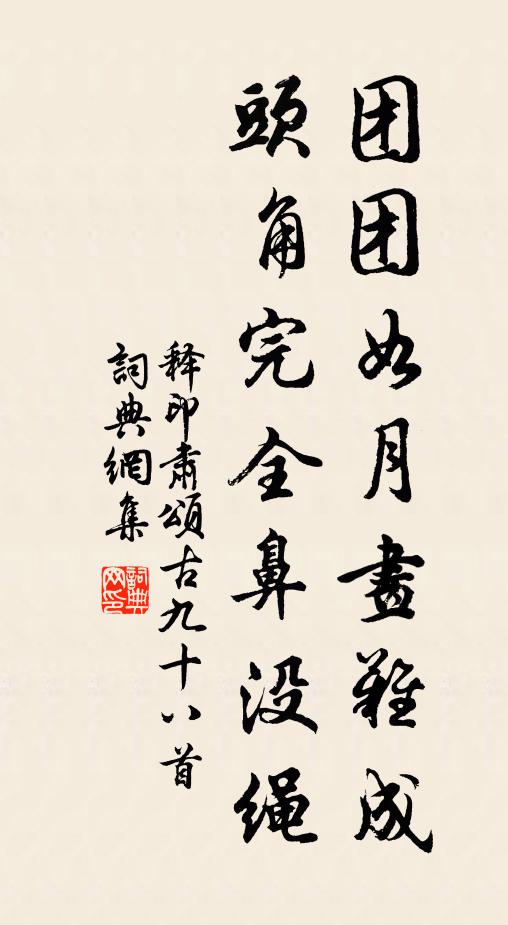 团团如月畫難成
頭角完全鼻没绳
释印肃頌古九十八首
詞典網集
詞典
网印